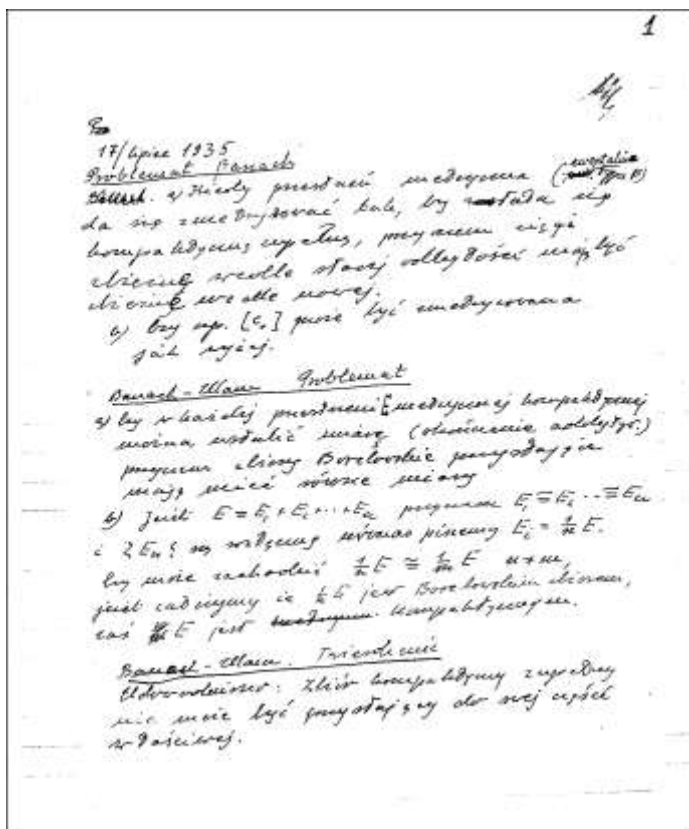 1
17/lipiec 1935
Problemat Banach
a) Kiedy przestrzeń metryczna (ewentualnie typu B)
da się zmetryzować tak, by stała się
kompaktyczną i zupełną, przy czem ciągi
zbieżne wedle starej odległości mają być
zbieżne wedle nowej.
b) Czy np. [c₀] może być zmetryzowana
jak wyżej.
Banach-Ulam Problemat
a) Czy w każdej przestrzeni E metrycznej kompaktycznej
można ustalić miarę (skończenie addytyw.)
przyczem zbiory Borelowskie przystające
mają mieć równe miary
b) Jeśli E = E₁ + E₂ + ... + Eₙ przyczem E₁ ≅ E₂ ... ≅ Eₙ
i {Eₙ} są rozłączne wówczas piszemy Eᵢ = 1/n E.
Czy może zachodzić 1/n E ≅ 1/m E n ≠ m,
jeśli założymy że 1/n E jest Borelowskim zbiorem,
zaś E jest kompaktycznym.
Banach-Ulam. Twierdzenie
Udowodniono: Zbiór kompaktyczny zupełny
nie może być przystający do swej części
właściwej.